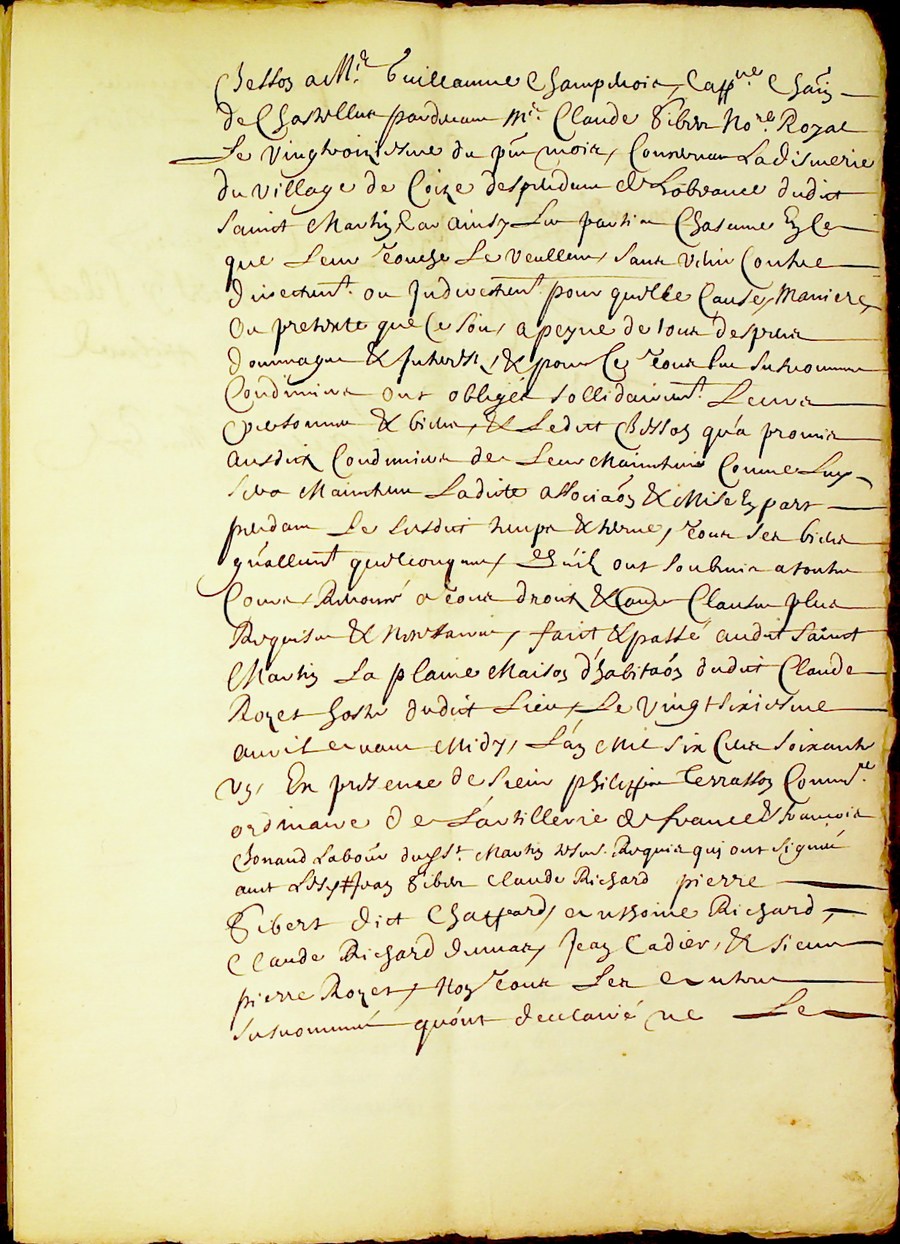 Besson a Mr. Guillaume Champmoir, Capp.ne Chan
de Chastellus pardevant Mr. Claude Gibert No.re Royal
Le vingtroiziesme du pnt mois, Concernant La dismerie
du village de Coize despendant de Lobreance dudit
Sainct Martin Car ainsy Les parties Chascune En Ce
que Leur touche Le Veullent, sans venir Contre
directemt. ou Indirectemt. pour quelle Cause, Maniere,
Ou pretexte que Ce soit, a peyne de tous despens
dommages & Interestz, & pour Ce tous les susnommes
Condimines ont obligés sollidairemt. Leurs
personnes & biens, & Ledict Besson qu'a promis
ausdictz Condimines de Leur Maintenir Comme Luy
sera Maintenu Ladicte associaon & Mise En part
pendant Le susdict temps & terme, tous ses biens
qu'allemt quelconques, Qu'ilz ont soubmis a toutes
Cours, Renoncé a tous droitz & Clauses plus
Requises & Necessaires, faict & passé audit Sainct
Martin La plaine Maison d'habitaon dudict Claude
Royet hoste dudict Lieu, Le vingt sixiesme
avril avant Midy, L'an Mil six Cens soixante
Un, En presence de Sieur philippe Terrasson Comm.re
ordinaire de L'artillerie de france & François
Chonand Labour dudt St. Martin tesms. Requis qui ont signué
avec Lesd. Jean Gibert Claude Richard pierre
Gibert dict Chappard, Anthoine Richard,
Claude Richard dumas, Jean Cadier, & sieur
pierre Royet, Non tous Les Autres
susnommés qu'ont declairé ne Le